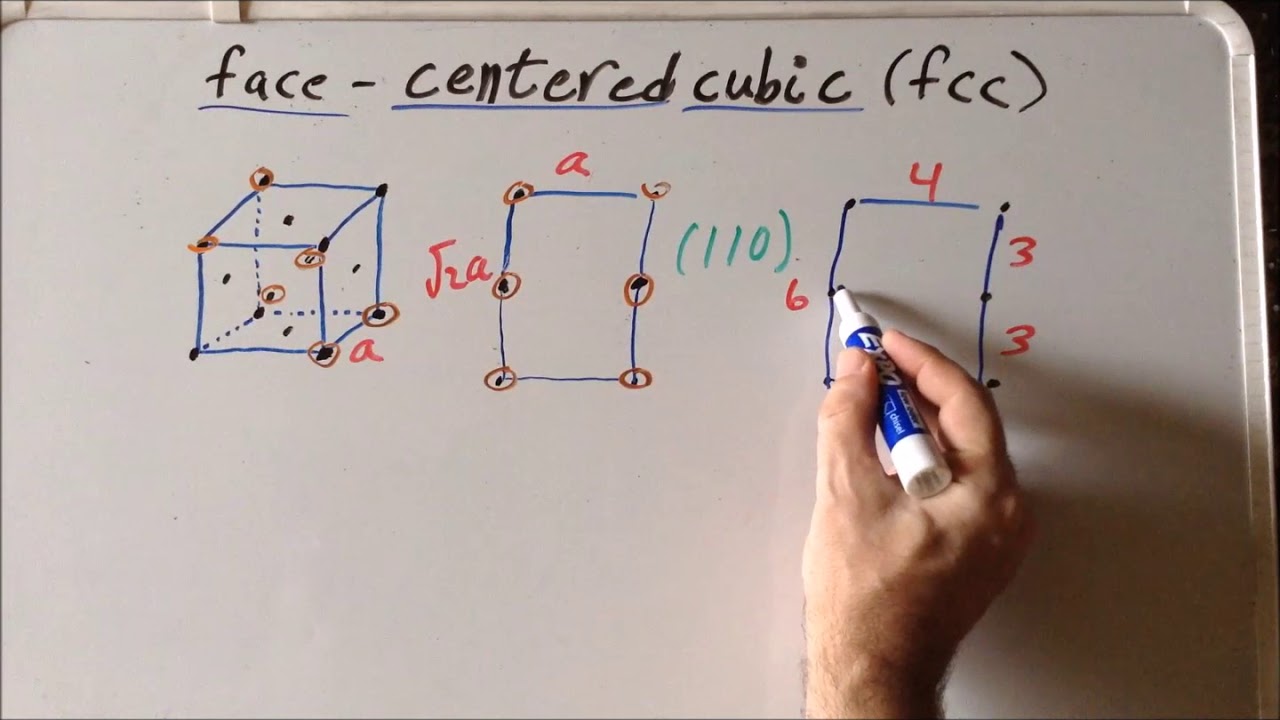 face-centered cubic (fcc)
a
4
(110)
3
√2a
6
3
a
EXPO
chisel